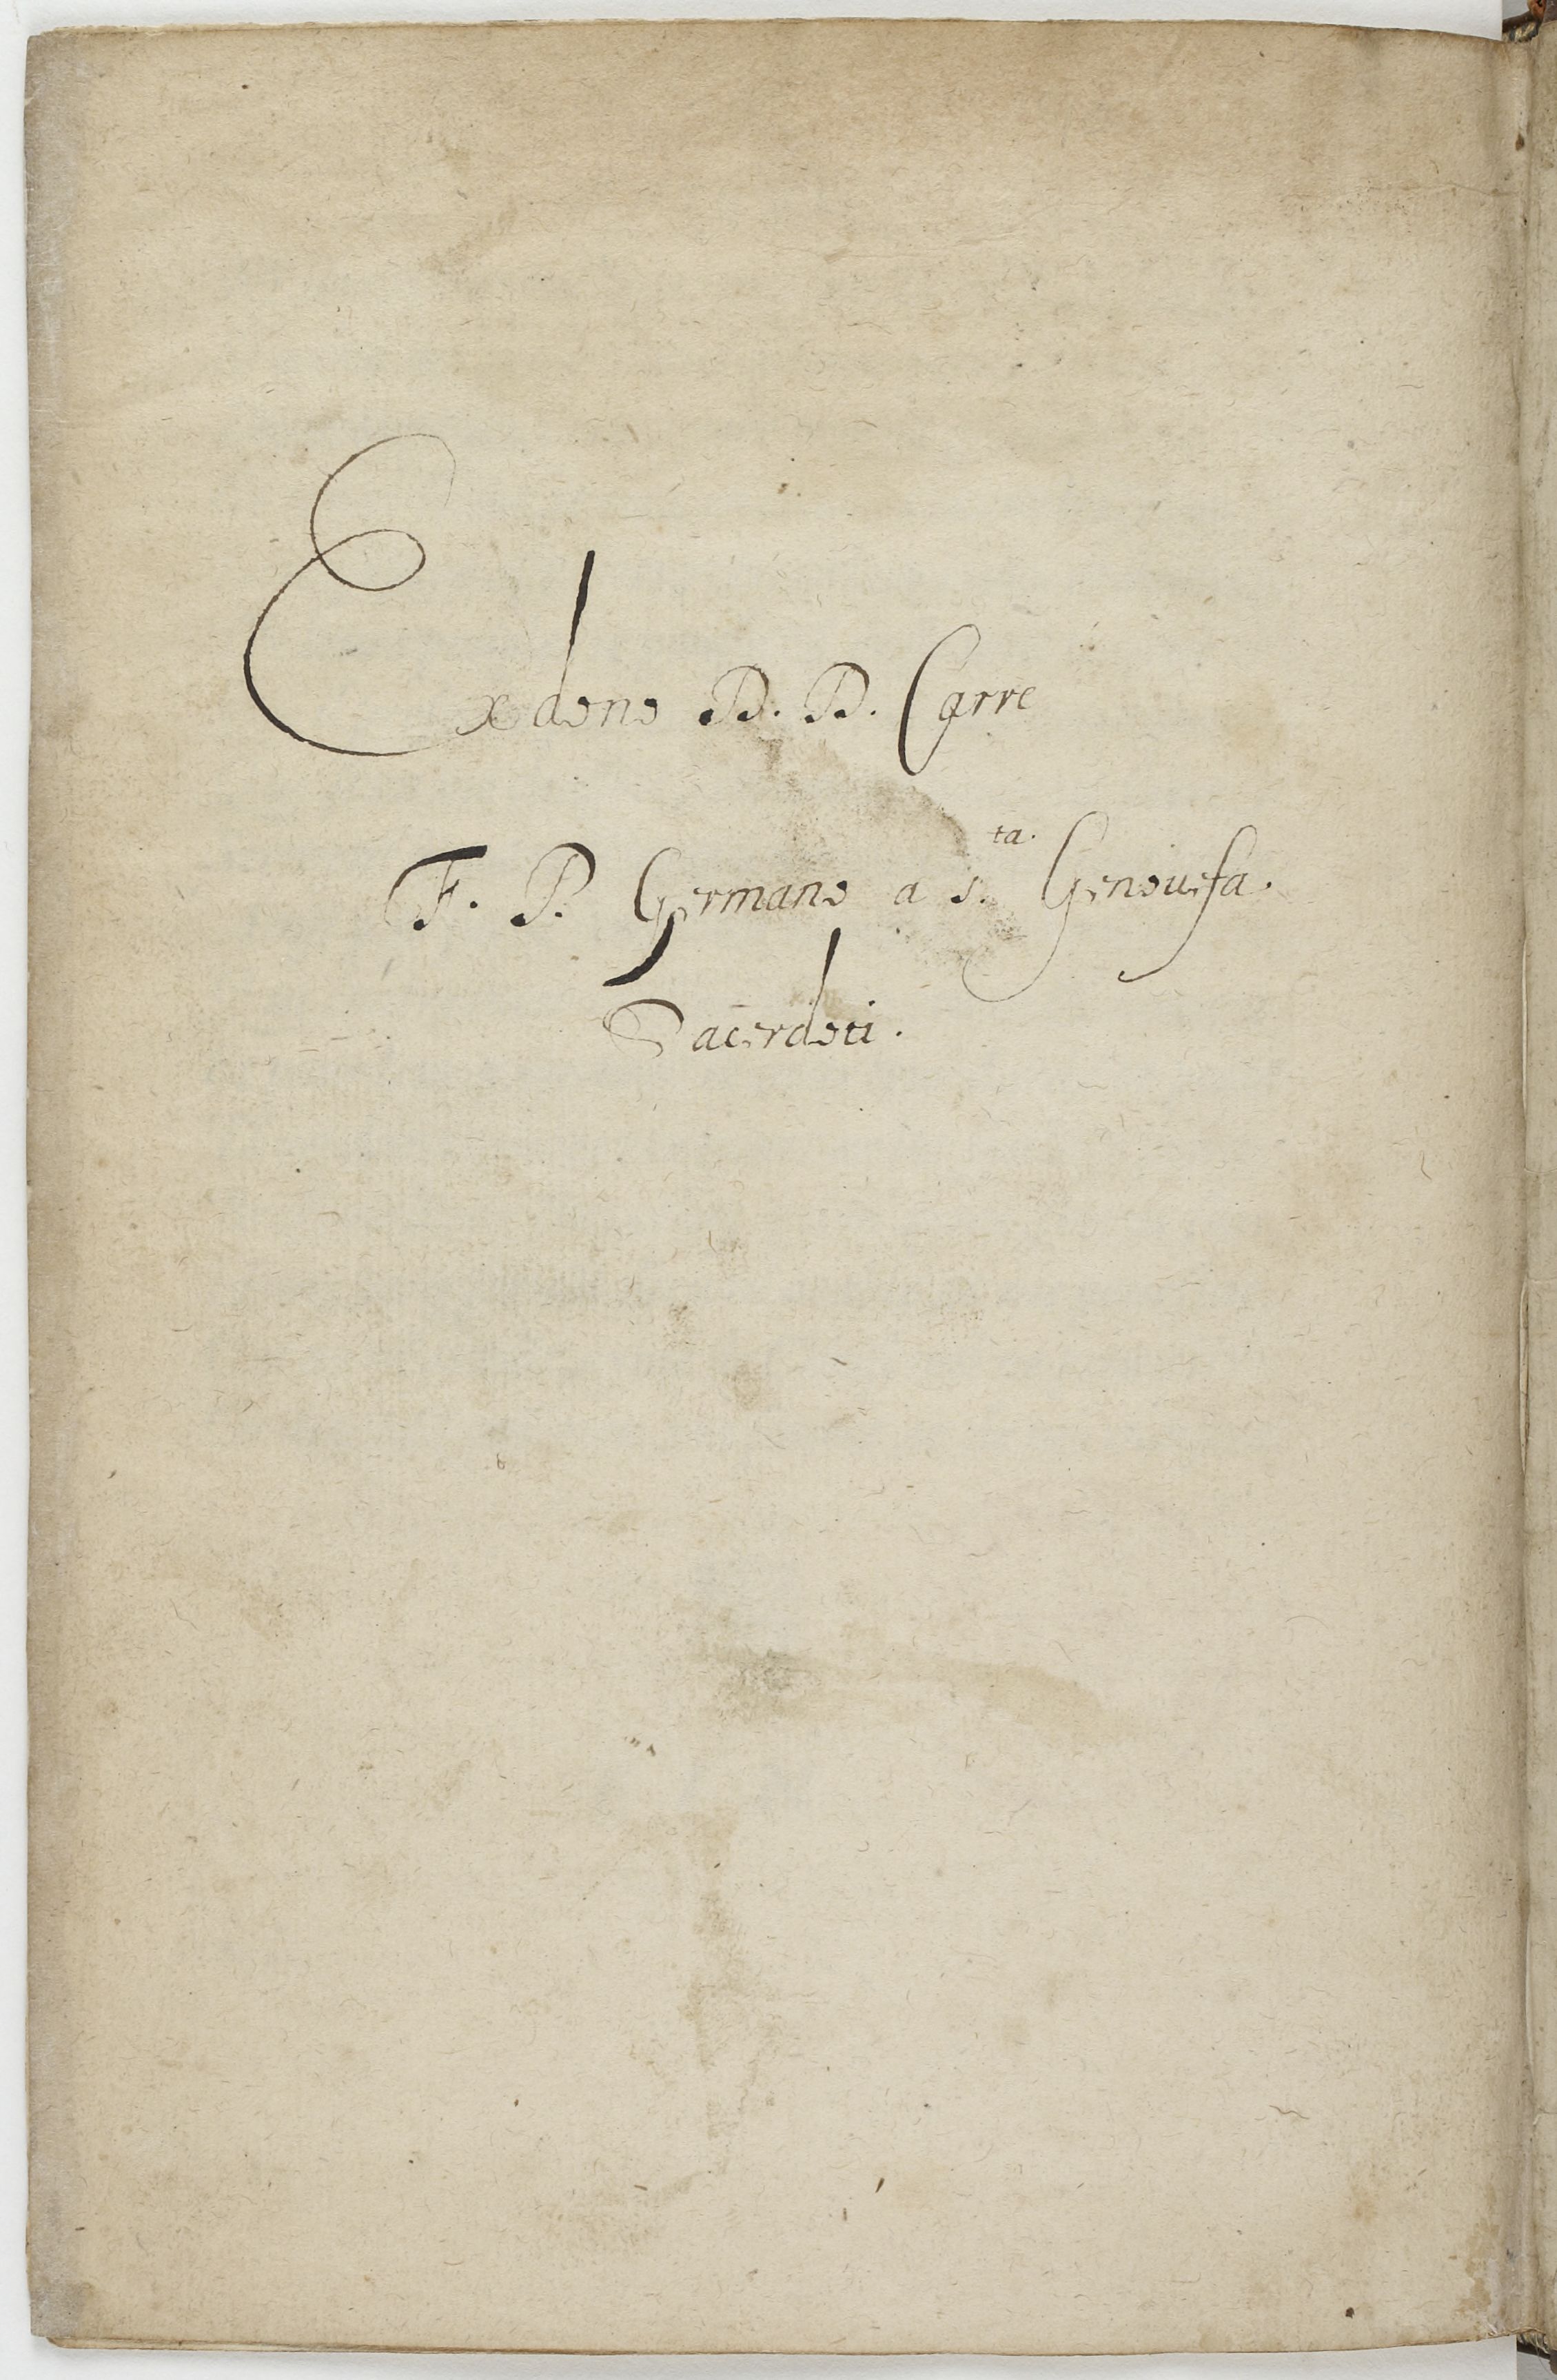 Ex dono D. D. Carre
F. P. Germano a s.ta Genouefa.
Sacerdoti.